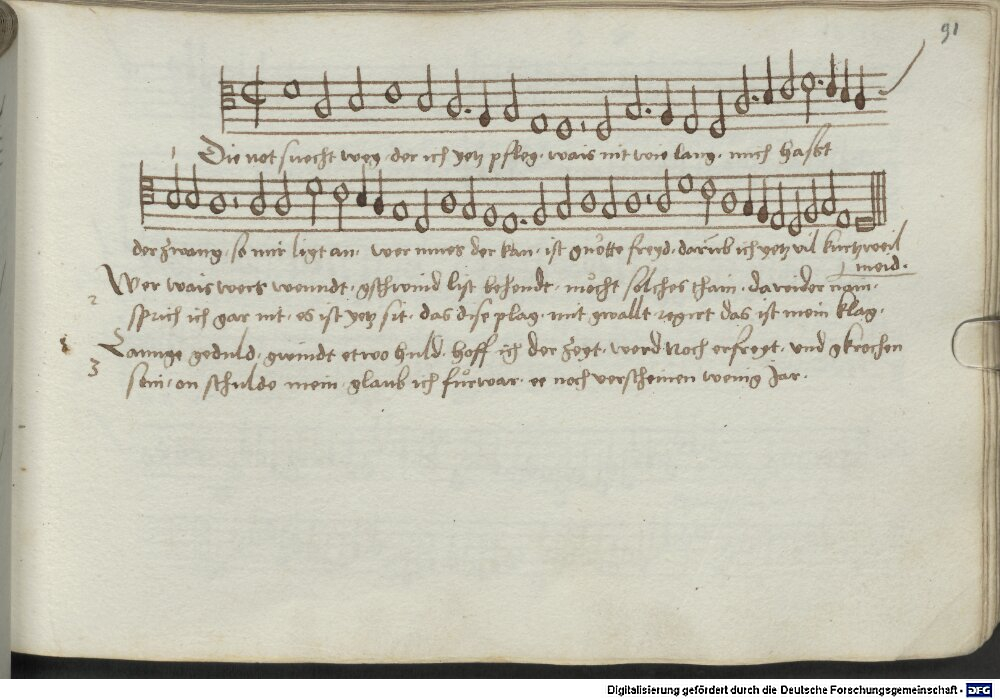 91
Die not suecht weg · der ich yetz pfleg · wais nit wie lang · mich hafft
1
der zwang · so mir ligt an · wer mues der kan · ist guotte freyd · darumb ich yetz vil kurtzweil
meid ·
2 Wer wais wers wenndt · gschwind list behendt · möcht solches thain · da wider nain ·
sprich ich gar nit · es ist yetz sit · das dise plag · mit gwallt regirt das ist mein klag ·
3 Lannge geduld · gwindt etwo huld · hoff ich der zeyt · werd noch erfreyt · und gkrochen
sein · on schulde mein · glaub ich fürwar · ee noch verscheinen wenig Jar ·
Digitalisierung gefördert durch die Deutsche Forschungsgemeinschaft - DFG